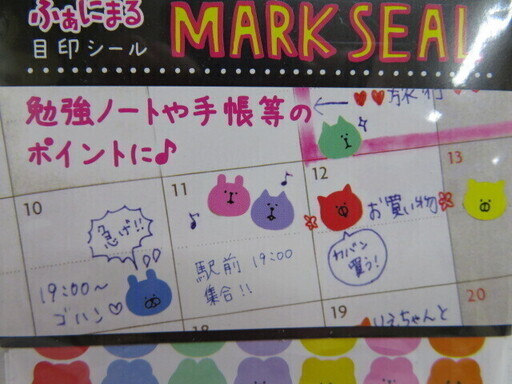 ふぁにまる
目印シール
MARK SEAL
勉強ノートや手帳等の
ポイントに♪
10
急げ!!
19:00〜
ゴハン♡
11
駅前 19:00
集合!!
12
お買い物
カバン
買う!
13
19
りえちゃんと
20